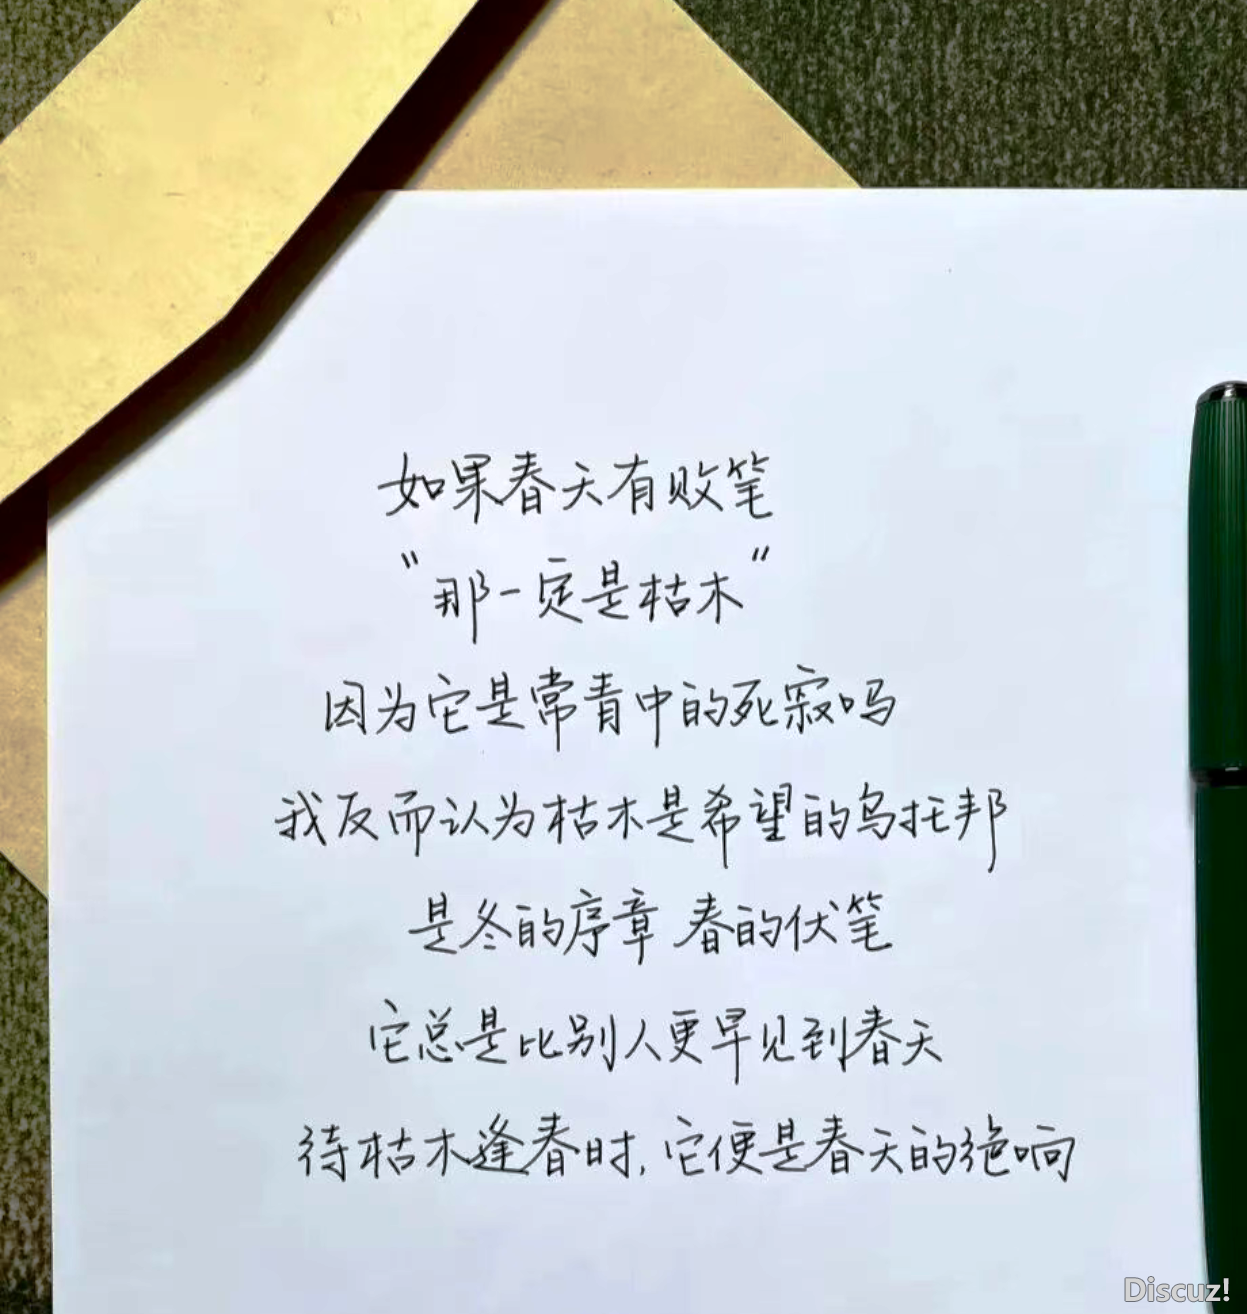 如果春天有败笔
"那一定是枯木"
因为它是常青中的死寂吗
我反而认为枯木是希望的乌托邦
是冬的序章 春的伏笔
它总是比别人更早见到春天
待枯木逢春时,它便是春天的绝响
Discuz!